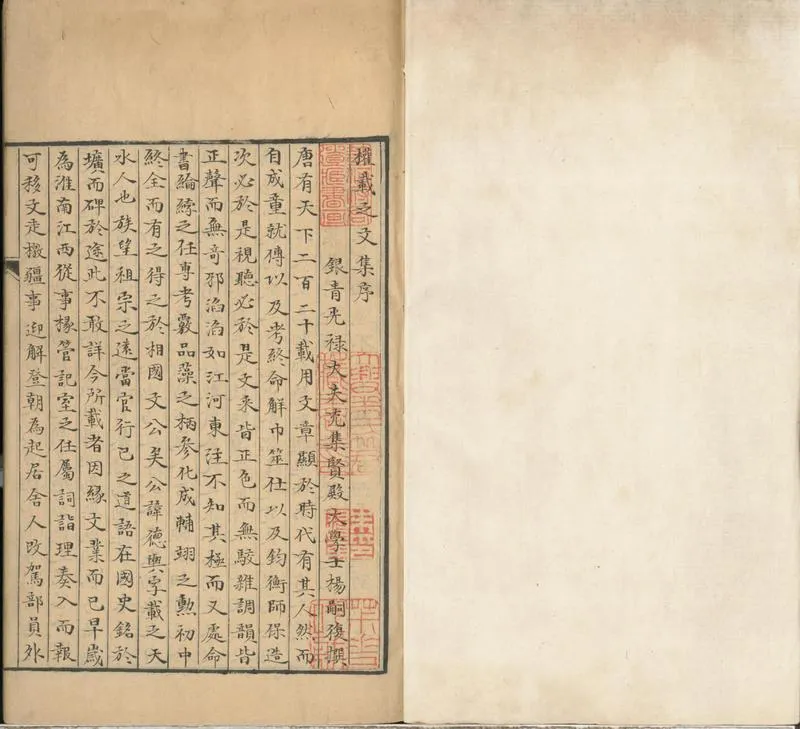 權載之文集序
銀青光禄大夫充集賢殿大學士楊嗣復撰
唐有天下二百二十載用文章顯於時代有其人然而
自成童就傅以及考終命解巾筮仕以及鈞衡師保造
次必於是視聽必於是文采皆正色而無駁雜調韻皆
正聲而無奇邪滔滔如江河東注不知其極而又處命
書綸綍之任專考覈品藻之柄參化成輔翊之勲初中
終全而有之得之於相國文公矣公諱德輿字載之天
水人也族望祖宗之遠當官行已之道語在國史銘於
壙而碑於途此不敢詳今所載者因緣文業而已早歲
為淮南江西從事掾管記室之任屬詞詣理奏入而報
可移文走檄疆事迎解登朝為起居舍人改駕部員外